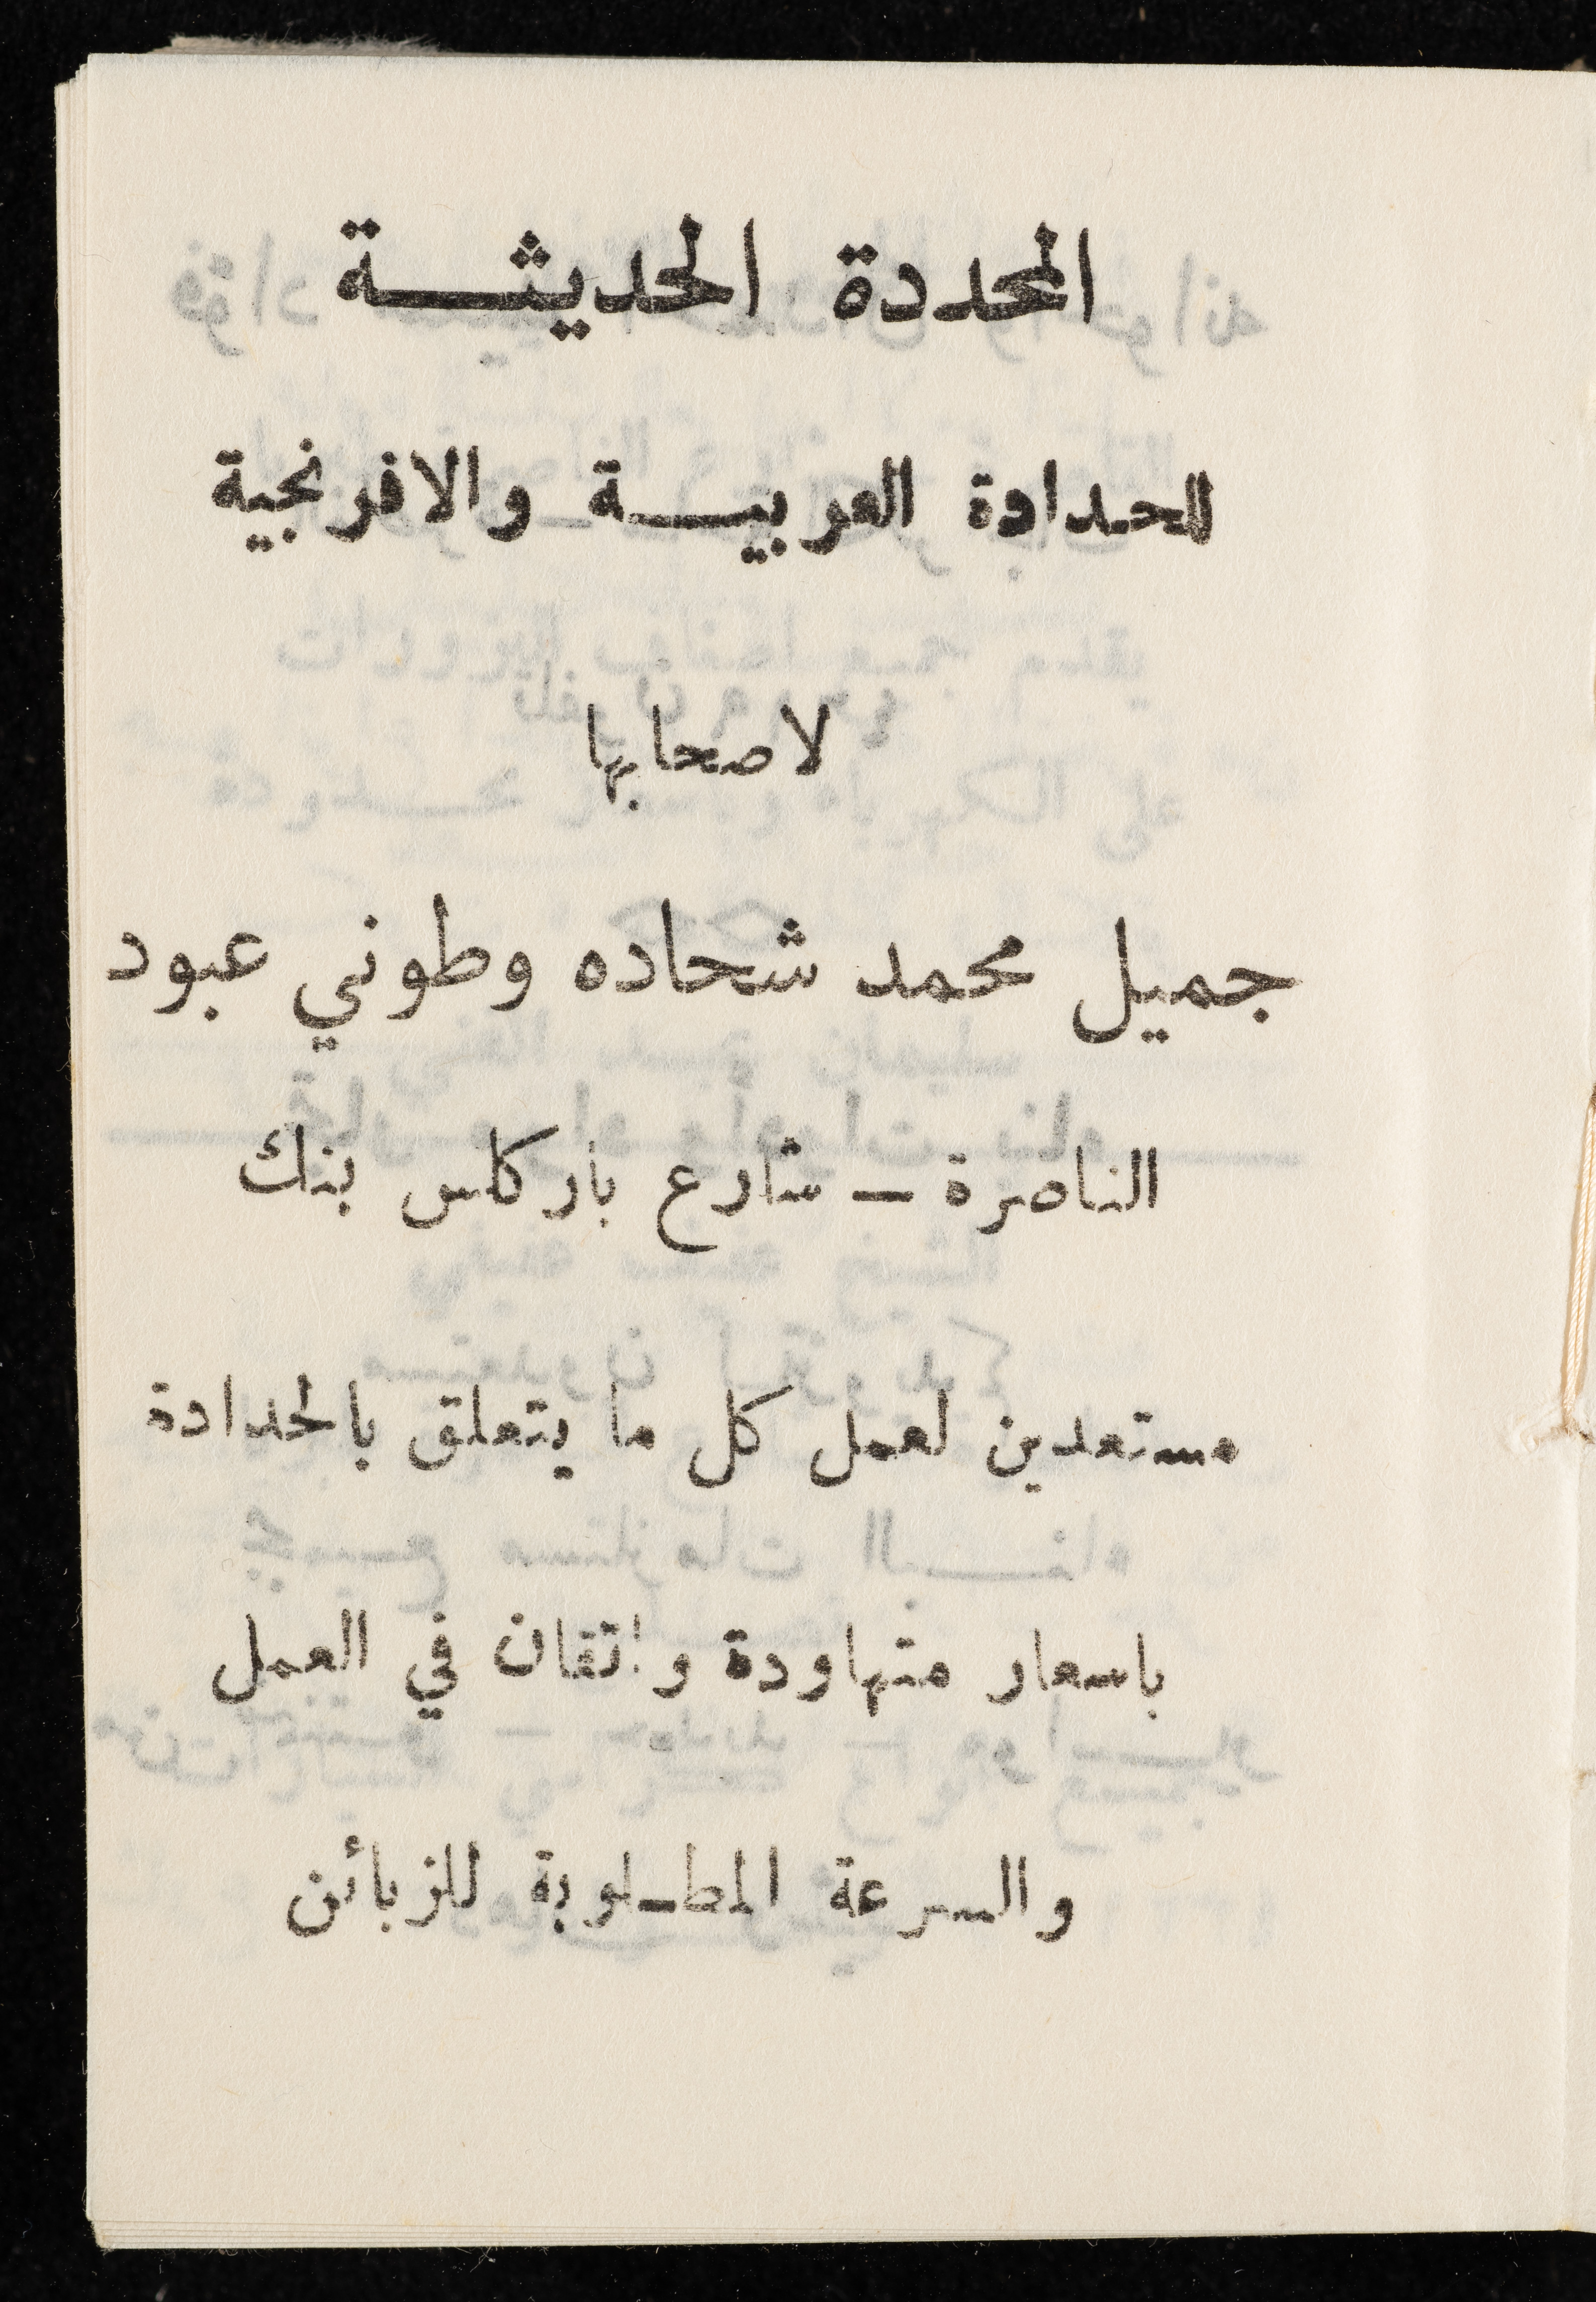 المحددة الحديثـــة
للحدادة العربيـــة والافرنجية
لاصحابها
جميل محمد شحاده وطوني عبود
الناصرة — شارع باركلس بنك
مستعدين لعمل كل ما يتعلق بالحدادة
باسعار متهاودة واتقان في العمل
والسرعة المطـلوبة للزبائن